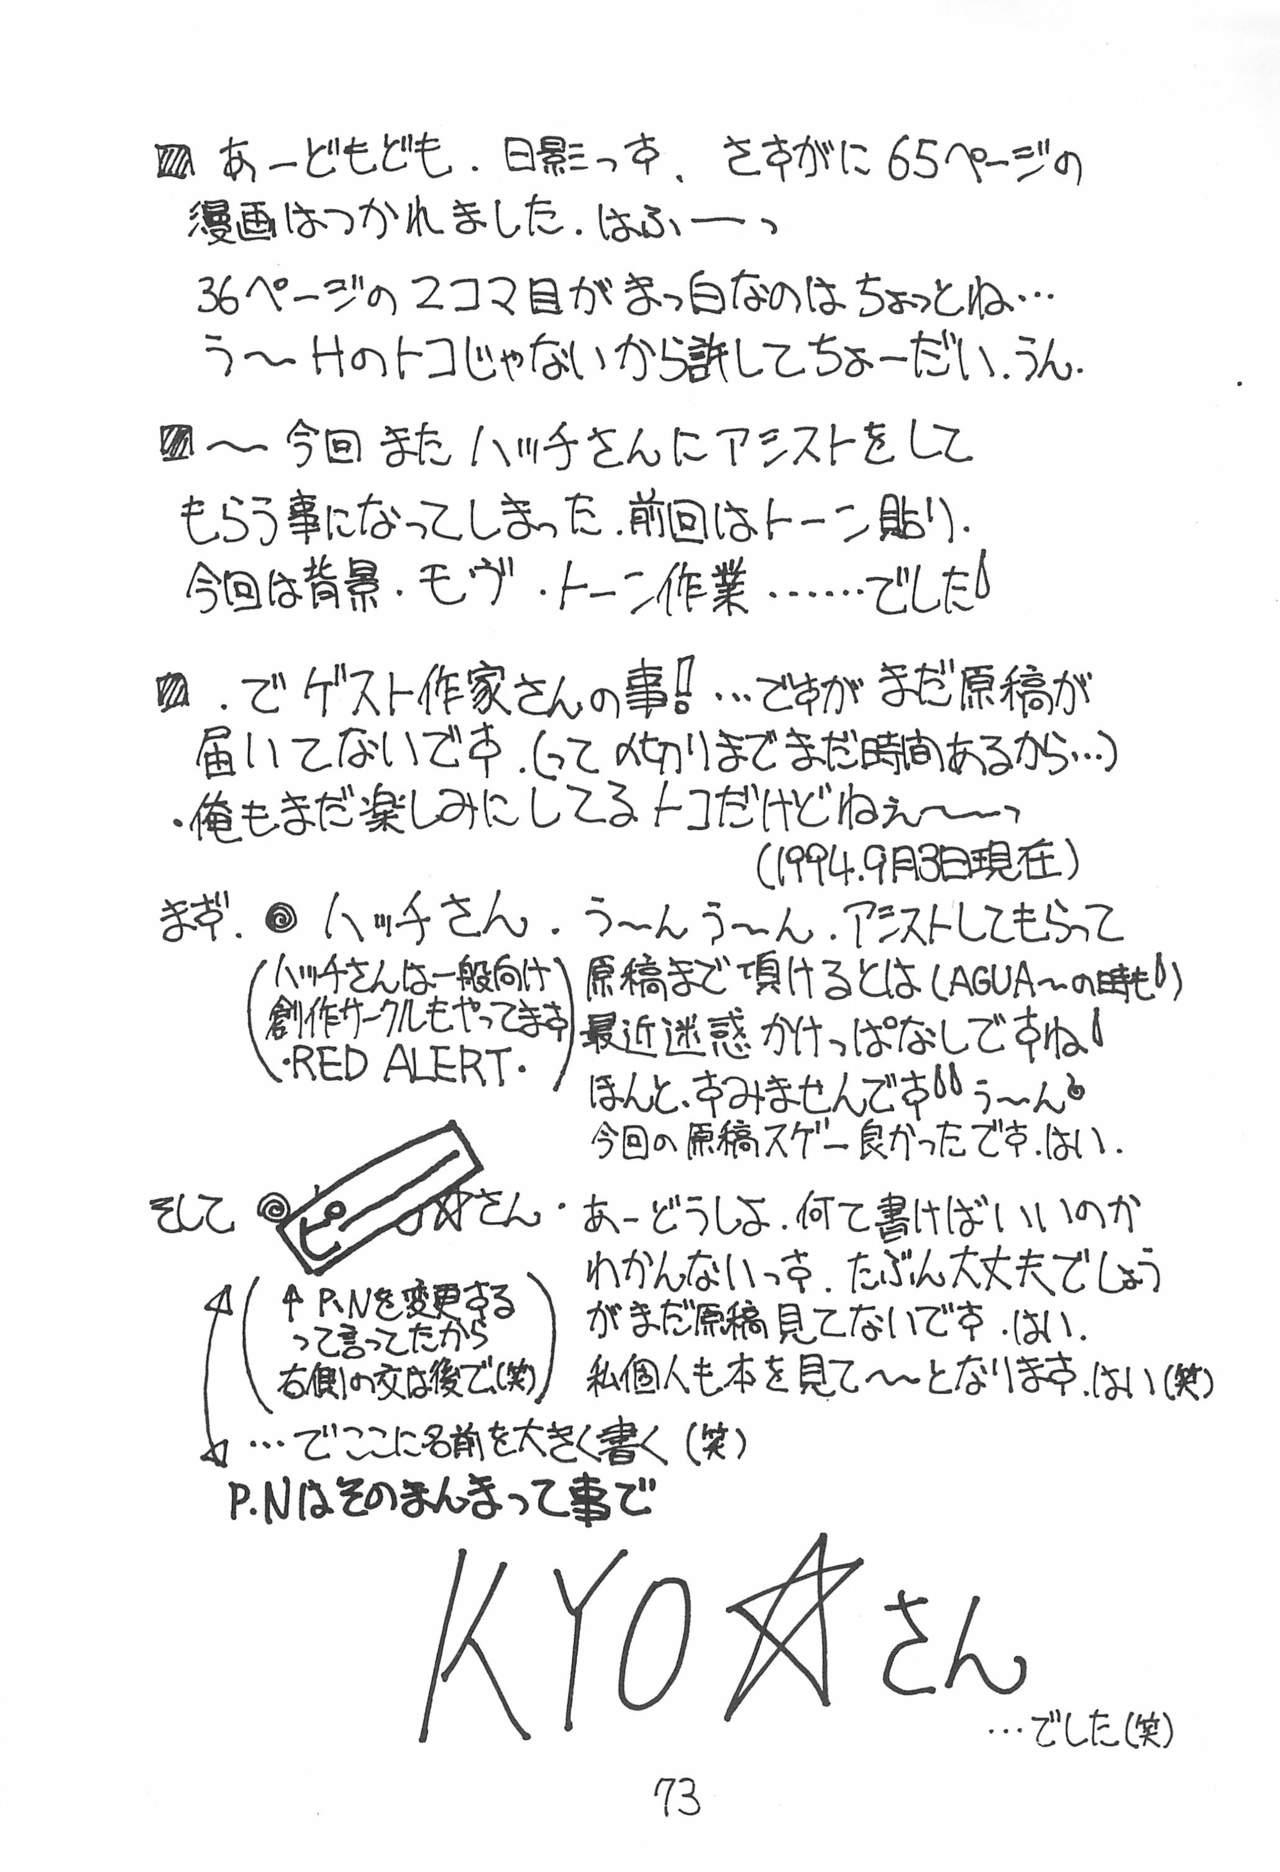 あーどもども.日影っす、さすがに65ページの
漫画はつかれました.はふーっ
36ページの2コマ目がまっ白なのはちょっとね…
う〜Hのトコじゃないから許してちょーだい.うん.
〜今回またハッチさんにアシストをして
もらう事になってしまった.前回はトーン貼り.
今回は背景・モヴ・トーン作業……でした
.でゲスト作家さんの事!…ですがまだ原稿が
届いてないです.(って〆切りまでまだ時間あるから…)
・俺もまだ楽しみにしてるトコだけどねぇ〜〜っ
(1994.9月3日現在)
まず.◎ハッチさん.う〜んう〜ん.アシストしてもらって
原稿まで頂けるとは(AGUA〜の時も)
最近迷惑かけっぱなしですね
ほんと、すみませんです う〜ん
今回の原稿スゲー良かったです.はい.
(ハッチさんは一般向け
創作サークルもやってます
・RED ALERT・)
そして◎ ピー ☆さん・あーどうしよ.何て書けばいいのか
わかんないっす.たぶん大丈夫でしょう
がまだ原稿見てないです.はい.
私個人も本を見て〜〜となります.はい(笑)
(↑P.Nを変更する
って言ってたから
右側の文は後で(笑))
…でここに名前を大きく書く(笑)
P.Nはそのまんまって事で
KYO☆さん
…でした(笑)
73